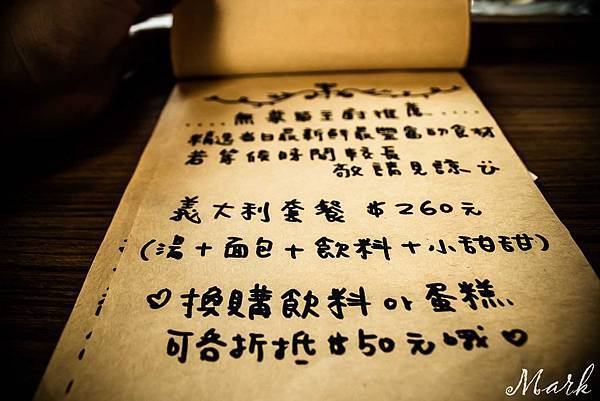 ....無菜單主廚推薦....
精選當日最新鮮最豐富的食材
若等候時間較長
敬請見諒
義大利套餐 $260元
(湯+面包+飲料+小甜甜)
♡換購飲料 or 蛋糕、
可各折抵$50元哦♡
Mark